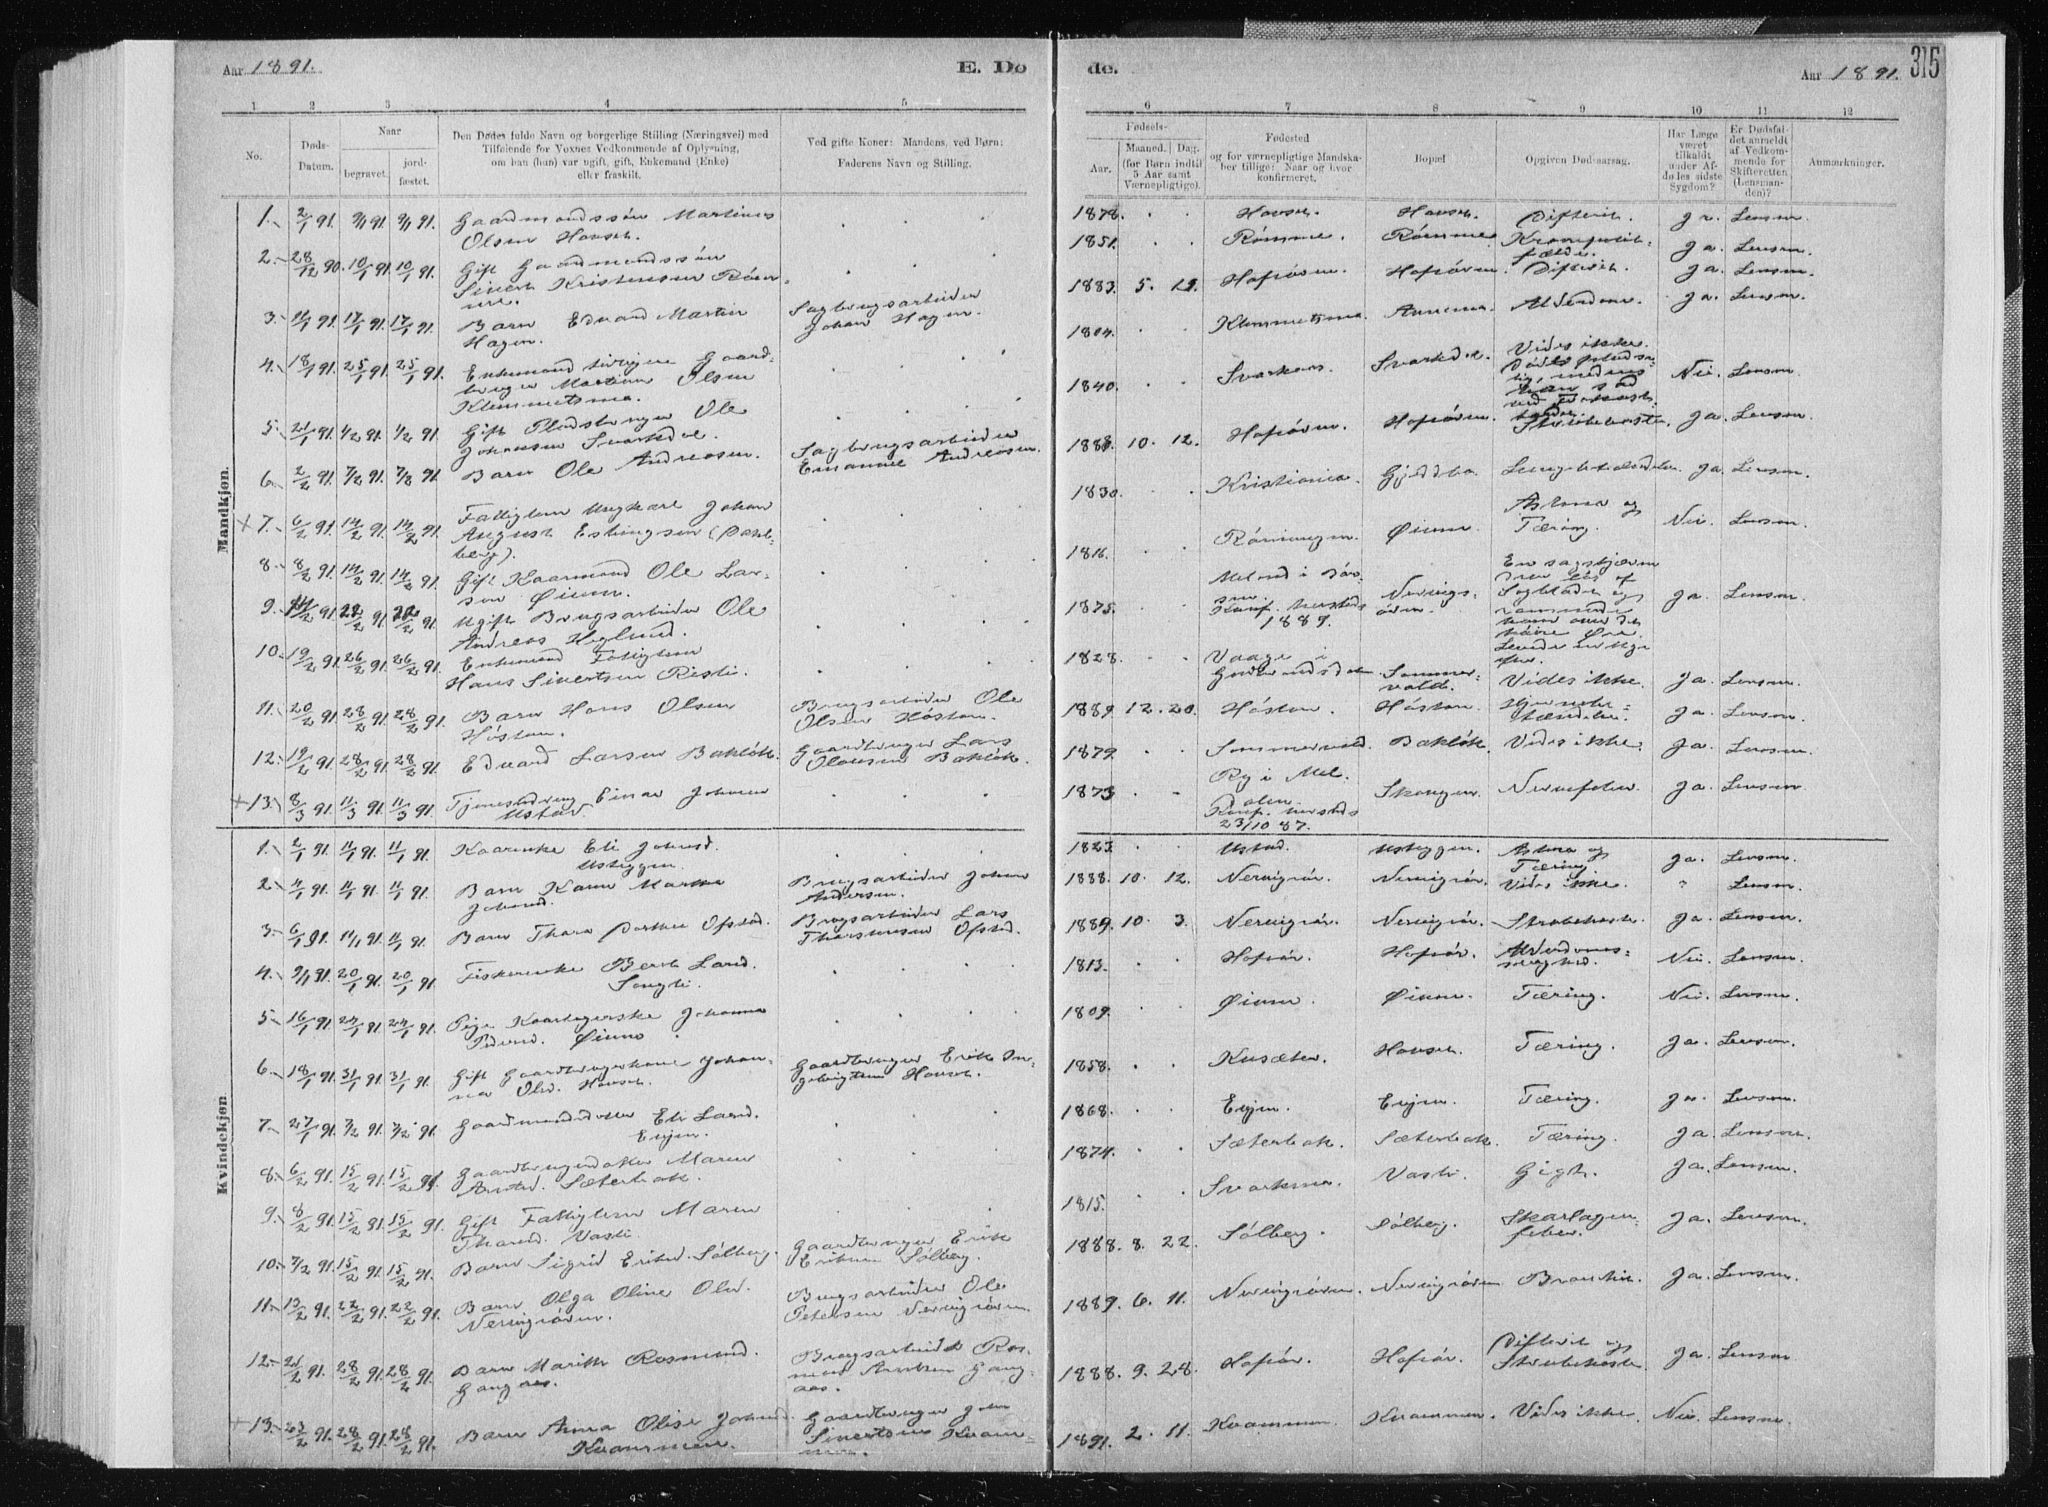 Aar 1891.
E. Dø
de.
Aar 1891.
315
1 2 3 4 5 6 7 8 9 10 11 12
No.
Døds-
Datum.
Naar
begravet.
jord-
fæstet.
Den Dødes fulde Navn og borgerlige Stilling (Næringsvei) med
Tilføiende for Voxnes Vedkommende af Oplysning,
om han (hun) var ugift, gift, Enkemand (Enke)
eller fraskilt.
Ved gifte Koner: Mandens, ved Børn:
Faderens Navn og Stilling.
Fødsels-
Aar.
Maaned. Dag.
(for Børn indtil
5 Aar samt
Værnepligtige).
Fødested
og for værnepligtige Mandska-
ber tillige: Naar og hvor
konfirmeret.
Bopæl
Opgiven Dødsaarsag.
Har Læge
været
tilkaldt
under Af-
dødes sidste
Sygdom?
Er Dødsfal-
det anmeldt
af Vedkom-
mende for
Skifteretten
(Lensman-
den)?
Anmærkninger.
Mandkjøn.
1. 2/1 91. 9/1 91. 9/1 91. Gaardmandssøn Martinus
Olsen Hovset.
1878. Hovset. Hovset. Difterit. Ja. Lensm.
2. 28/12 90. 10/1 91. 10/1 91. Gift Gaardmandssøn
Sivert Kristensen Røm-
me.
1851. Rømme. Rømme. Ja. Lensm.
3. 11/1 91. 17/1 91. 17/1 91. Barn Edvard Martin
Hagen.
Sagbrugsarbeider
Johan Hagen.
1883. 5. 19. Hofsøren. Hofsøren. Difterit. Ja. Lensm.
4. 18/1 91. 25/1 91. 25/1 91. Enkemand Gaard-
bruger Martin Olsen
Klemmetsmo.
1804. Klemmetsmo. Alderdom. Ja. Lensm.
5. 21/1 91. 1/2 91. 1/2 91. Gift Pladsbruger Ole
Johansen Svorkdal.
1840. Svorkdal. Vides ikke.
Døde pludse-
lig, medens
han sad
ved
Nei. Lensm.
6. 2/2 91. 7/2 91. 7/2 91. Barn Ole Andreasen.
Sagbrugsarbeider
Emanuel Andreasen.
1888 10. 12. Hofsøren. Hofsøren. Strubehoste. Ja. Lensm.
7. 6/2 91. 14/2 91. 14/2 91. Fattiglem Ungkarl Johan
August
1830. Kristiania. Ja. Lensm.
8. 8/2 91. 14/2 91. 14/2 91. Gift Kaarmand Ole Lar-
sen Øiumn.
1816. Øiumn. Astma og
Tæring. Nei. Lensm.
9. 14/2 91. 22/2 91. 22/2 91. Ugift Brugsarbeider Ole
Andreas Høglund.
1875. Meland i Bør-
sen.
1889.
Ja. Lensm.
10. 19/2 91. 26/2 91. 26/2 91. Enkemand Fattiglem
Hans Sivertsen Risti.
1828. Vaage i
Gudbrandsdalen Sommer-
vold. Vides ikke. Ja. Lensm.
11. 20/2 91. 28/2 91. 28/2 91. Barn Hans Olsen
Høston.
Brugsarbeider Ole
Olsen Høston.
1889. 12. 20. Høston. Høston. Ja. Lensm.
12. 19/2 91. 28/2 91. 28/2 91. Edvard Larsen Bakløk.
Gaardbruger Lars
Olausen Bakløk.
1879. Sommervold. Bakløk. Vides ikke. Ja. Lensm.
13. 8/3 91. 11/3 91. 11/3 91. Tjenestedreng Einar Johnsen
Ustad.
1873 Ry i Mel-
dalen.
23/10 87.
Skaugen. Nervefeber. Ja. Lensm.
Kvindekjøn.
1. 2/1 91. 11/1 91. 11/1 91. Kaarenke Eli Johnsd.
Ustyggen.
1823. Ustad. Ustyggen. Astma og
Tæring. Ja. Lensm.
2. 4/1 91. 11/1 91. 11/1 91. Barn Karen Marthe
Johansd.
Brugsarbeider Johan
Andersen.
1888. 10. 12. Nervigsør. Nervigsør. Vides ikke. " Lensm.
3. 6/1 91. 11/1 91. 11/1 91. Barn Thora Dorthea Ofstad.
Brugsarbeider Lars
Thorstensen Ofstad.
1889. 10. 3. Nervigsør. Nervigsør. Strubehoste. Ja. Lensm.
4. 9/1 91. 20/1 91. 20/1 91. Fiskerenke Berit Larsd.
Songli.
1813. Hofsør. Hofsør. Alderdoms-
svaghed. Nei. Lensm.
5. 16/1 91. 24/1 91. 24/1 91. Pige Kaartagerske Johanna
Pedersd. Øiumn.
1809. Øiumn. Øiumn. Tæring. Nei. Lensm.
6. 18/1 91. 31/1 91. 31/1 91. Gift Gaardbrugerkone Johan-
na Olsd. Hovset.
Gaardbruger Erik In-
gebrigtsen Hovset.
1858. Kusæter. Hovset. Tæring. Ja. Lensm.
7. 27/1 91. 7/2 91. 7/2 91. Gaardmandsdatter Eli Larsd.
Evjen.
1868. Evjen. Evjen. Tæring. Ja. Lensm.
8. 6/2 91. 15/2 91. 15/2 91. Gaardbrugerdatter Maren
Arntsd. Sæterbak.
1874. Sæterbak. Sæterbak. Tæring. Ja. Lensm.
9. 8/2 91. 15/2 91. 15/2 91. Gift Fattiglem Maren
Thoresd. Vasli.
1815. Svorkmo. Vasli. Gigt. Ja. Lensm.
10. 7/2 91. 15/2 91. 15/2 91. Barn Sigrid Eriksd. Sølberg.
Gaardbruger Erik
Eriksen Sølberg.
1888. 8. 22. Sølberg. Sølberg. Skarlagen-
feber. Ja. Lensm.
11. 13/2 91. 22/2 91. 22/2 91. Barn Olga Oline Olsd.
Nervigsøren.
Brugsarbeider Ole
Petersen Nervigsøren.
1889. 6. 11. Nervigsøren. Nervigsøren Bronkit. Ja. Lensm.
12. 21/2 91. 28/2 91. 28/2 91. Barn Marith Rasmusd.
Gangaas.
Brugsarbeider Ras-
mus Arntsen Gang-
aas.
1888. 9. 28. Hofsør. Hofsør. Difterit og
Strubehoste. Ja. Lensm.
13. 23/2 91. 28/2 91. 28/2 91. Barn Anna Olise Johnsd.
Kvammen.
Gaardbruger John
Sivertsen Kvam-
men.
1891. 2. 11. Kvammen. Kvammen. Vides ikke. Nei. Lensm.